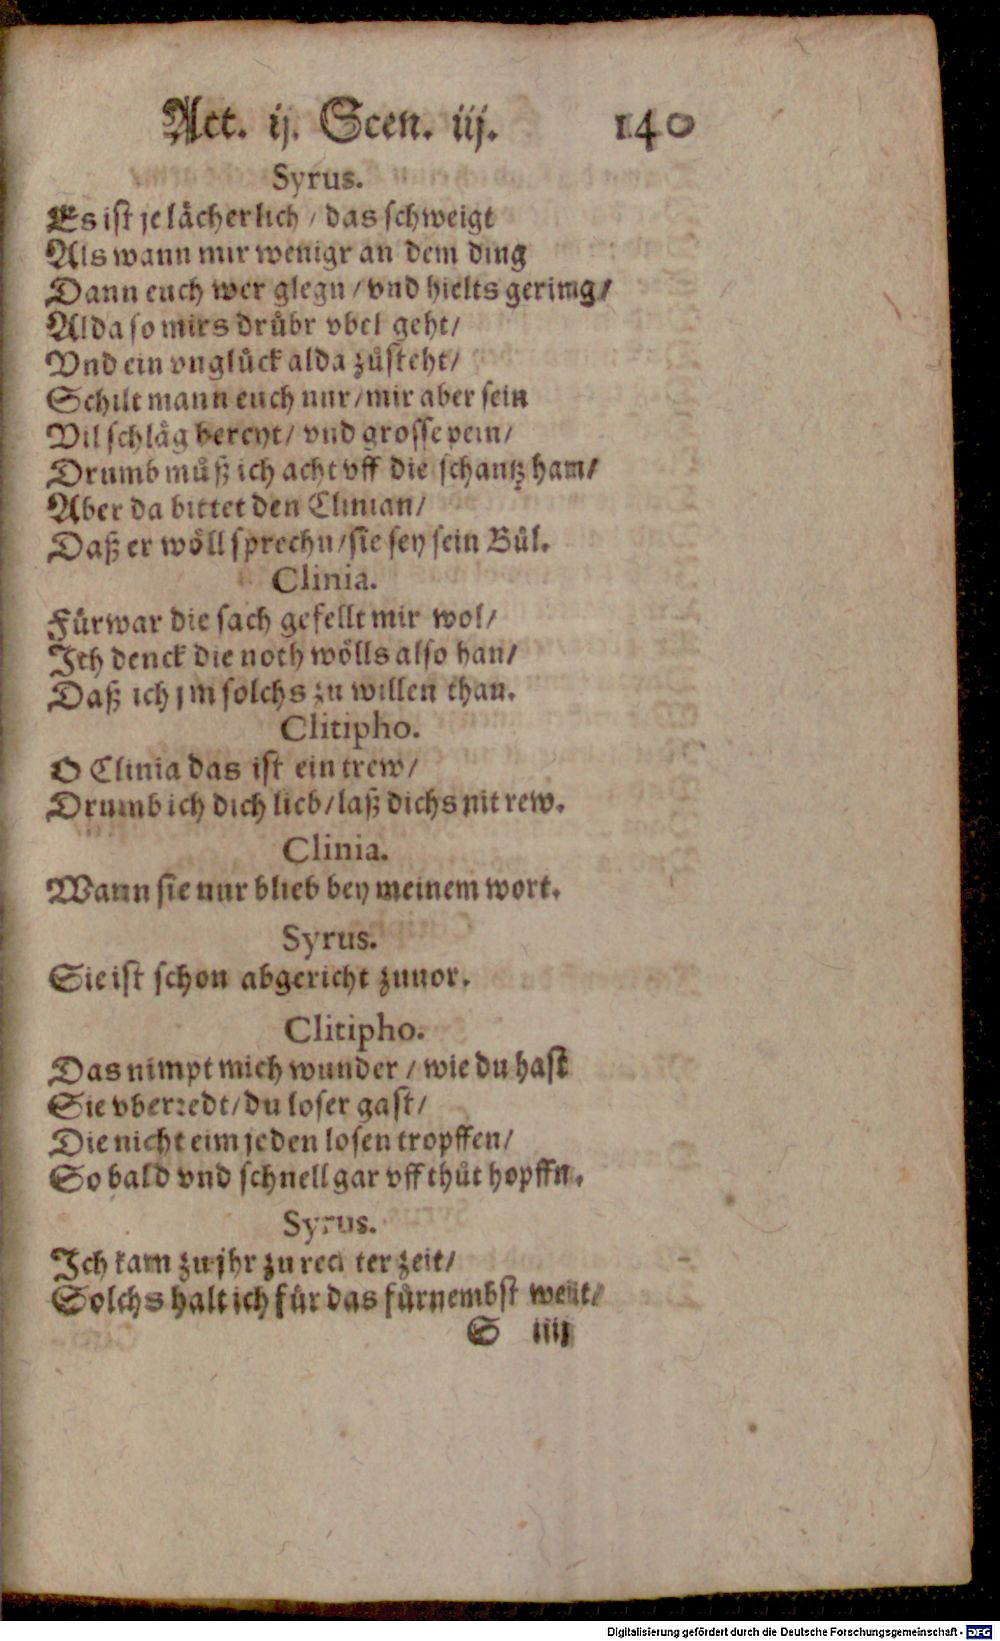 Act. ij. Scen. iij. 140
Syrus.
Es ist je lächerlich / das schweigt
Als wann mir wenigr an dem ding
Dann euch wer glegn / vnd hielts gering /
Alda so mirs drübr vbel geht /
Vnd ein vnglück alda zůsteht /
Schilt mann euch nur / mir aber sein
Vil schläg bereyt / vnd grosse pein /
Drumb můß ich acht vff die schantz ham /
Aber da bittet den Clinian /
Daß er wöll sprechn / sie sey sein Bůl.
Clinia.
Fürwar die sach gefellt mir wol /
Ich denck die noth wölls also han /
Daß ich jm solchs zu willen than.
Clitipho.
O Clinia das ist ein trew /
Drumb ich dich lieb / laß dichs nit rew.
Clinia.
Wann sie nur blieb bey meinem wort.
Syrus.
Sie ist schon abgericht zuuor.
Clitipho.
Das nimpt mich wunder / wie du hast
Sie vberredt / du loser gast /
Die nicht eim jeden losen tropffen /
So bald vnd schnell gar vff thůt hopffn.
Syrus.
Ich kam zu jhr zu rechter zeit /
Solchs halt ich für das fürnembst weit /
S iiij
Digitalisierung gefördert durch die Deutsche Forschungsgemeinschaft - DFG